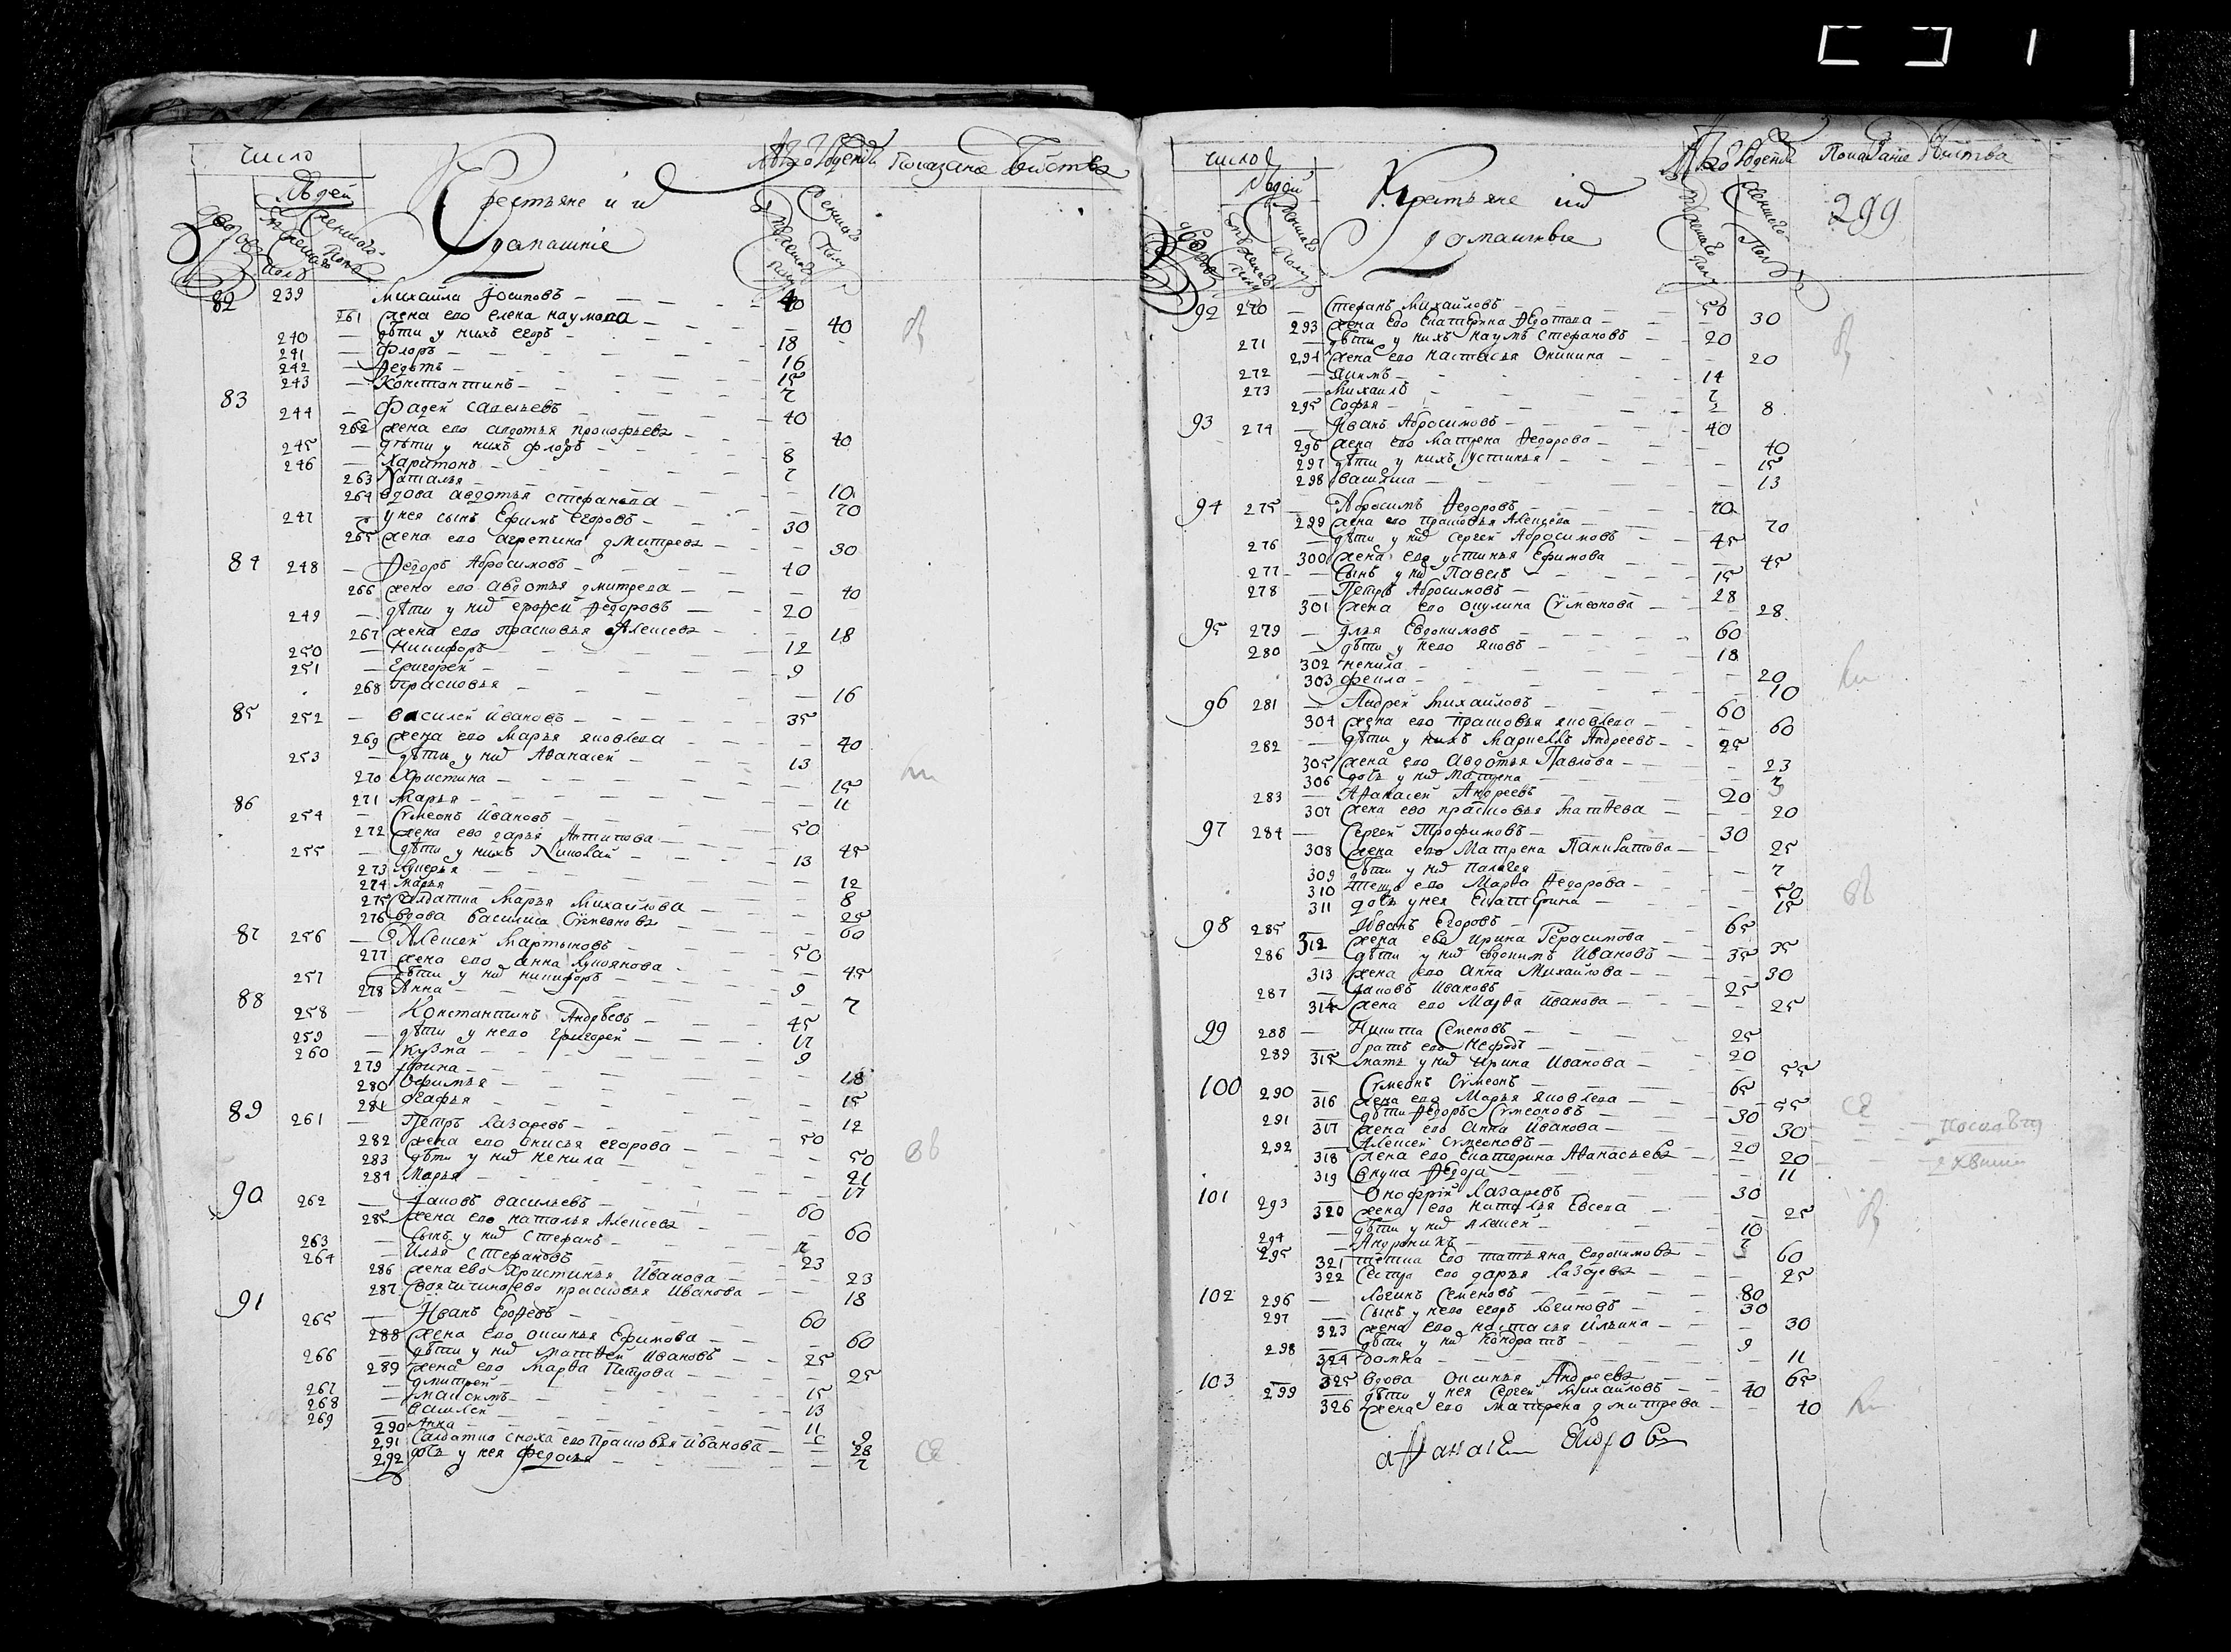 число Крестьяне и их домашние Лѣто рождения Показание бытства
людей
дворов мужеска полу женска полу мужеска полу женска полу
82 239 Михаила Осиповъ 40
261 жена ево елена наумова 40
240 дѣти у нихъ егоръ 18
241 Флоръ 16
242 Ѳедотъ 15
243 Константинъ 7
83 244 Фадей савельевъ 40
262 жена ево авдотья прокофьева 40
245 дѣти у нихъ флоръ 8
246 Харитонъ 7
263 Наталья 10
264 вдова авдотья стефанова 70
247 у нея сынъ Ефимъ егоровъ 30
265 жена ево агрепина дмитрева 30
84 248 Ѳедоръ Абросимовъ 40
266 жена ево авдотья дмитрева 40
249 дѣти у них ерофей Ѳедоровъ 20
267 жена ево прасковья Алексева 18
250 Никифоръ 12
251 Григорей 9
268 прасковья 16
85 252 василей ивановъ 35
269 жена ево марья яковлева 40
253 дѣти у них Аѳанасей 13
270 Христина 15
271 Марья 11
86 254 Сүмеонъ ивановъ 50
272 жена ево дарья Антипова 45
255 дѣти у нихъ Николай 13
273 лукерья 12
274 марья 8
275 Салдатка Марья Михайлова 25
276 вдова василиса Сүмеонова 60
87 256 Алексей Мартыновъ 50
277 жена ево анна лукоянова 45
257 дѣти у них никифоръ 9
278 Анна 7
88 258 Константинъ Андрѣевъ 45
259 дѣти у него Григорей 17
260 кузма 9
279 ефина 18
280 офимья 15
281 агафья 12
89 261 Петръ Лазаревъ 50
282 жена ево анисья егорова 50
283 дѣти у них ненила 21
284 Марья 17
90 262 Iаковъ васильевъ 60
285 жена ево наталья Алексева 60
263 сынъ у них стефанъ
264 Илья стефановъ 23
286 жена ево Христинья Иванова 23
287 свояченица ево прасковья Иванова 18
91 265 Иванъ Ерофеевъ 60
288 жена ево оксинья Ефимова 60
266 дѣти у них матѳей ивановъ 25
289 жена ево марѳа Петрова 25
267 дмитрей 15
268 максимъ 13
269 василей 11
290 Анна 9
291 салдатка сноха ево прасковья иванова 28
292 дочь у нея федосья 7
св
число Крестьяне их домашние Лѣто рождения Показание бытства
людей
дворов мужеска полу женска полу мужеска полу женска полу
299
92 270 Стефанъ Михайловъ 50
293 жена ево Екатерина Ѳедотова 30
271 дѣти у нихъ наумъ стефановъ 20
294 жена ево настасья Оникина 20
272 якимъ 14
273 михаилъ 7
295 софья 8
93 274 Иванъ Абросимовъ 40
296 жена ево матрена Ѳедорова 40
297 дѣти у нихъ устинья 15
298 василиса 13
94 275 Абросимъ Ѳедоровъ 70
299 жена ево прасковья Алексева 70
276 дѣти у них сергей Абросимовъ 45
300 жена ево устинья Ефимова 45
277 сынъ у них Павелъ 15
278 Петръ Абросимовъ 28
301 жена ево окулина Сүмеонова 28
95 279 Iлья Евдокимовъ 60
280 дѣти у нево яковъ 18
302 ненила 20
303 фекла 10
96 281 Андрей Михаиловъ 60
304 жена ево прасковья яковлева 60
282 дѣти у нихъ маркеллъ Андреевъ 25
305 жена ево Авдотья Павлова 23
306 дочь у них матрена 3
283 Аѳанасей Андреевъ 20
307 жена ево прасковья матѳева 20
97 284 Сергей Трофимовъ 30
308 жена ево матрена Панкратова 25
309 дѣти у них палагея 7
310 теща ево Марѳа Ѳедорова 50
311 дочь у нея Екатерина 15
98 285 Иванъ Егоровъ 65
312 жена ево ирина Герасимова 35
286 дѣти у них евдокимъ Ивановъ 35
313 жена ево анна Михайлова 30
287 Iаковъ ивановъ 25
314 жена ево Марѳа Иванова 25
99 288 Никита Семеновъ 25
289 братъ ево нефодъ 20
315 мать у них ирина Иванова 55
100 290 Сүмеонъ Сүмеонъ 65
316 жена ево Марья яковлева 55
291 дѣти Ѳедоръ Сүмеоновъ 30
317 жена ево анна Иванова 30
292 Алексей Сүмеоновъ 20
318 жена ево Екатерина Аѳанасьева 20
319 внука Ѳедора 11
101 293 Онофрiй Лазаревъ 30
320 жена ево наталья Евсева 25
294 дѣти у них алексей 10
295 Андроникъ
321 тетка ево татьяна евдокимова 60
322 сестра ево дарья Лазарева 25
102 296 Логинъ Семеновъ 80
297 сынъ у нево егоръ логиновъ 30
323 жена ево настасья ильина 30
298 дѣти у них Кондратъ 9
324 домна 11
103 325 вдова Оксинья Андреева 65
299 дѣти у нея Сергей Михайловъ 40
326 жена ево матрена дмитрева 40
аѳанасей Егоровъ